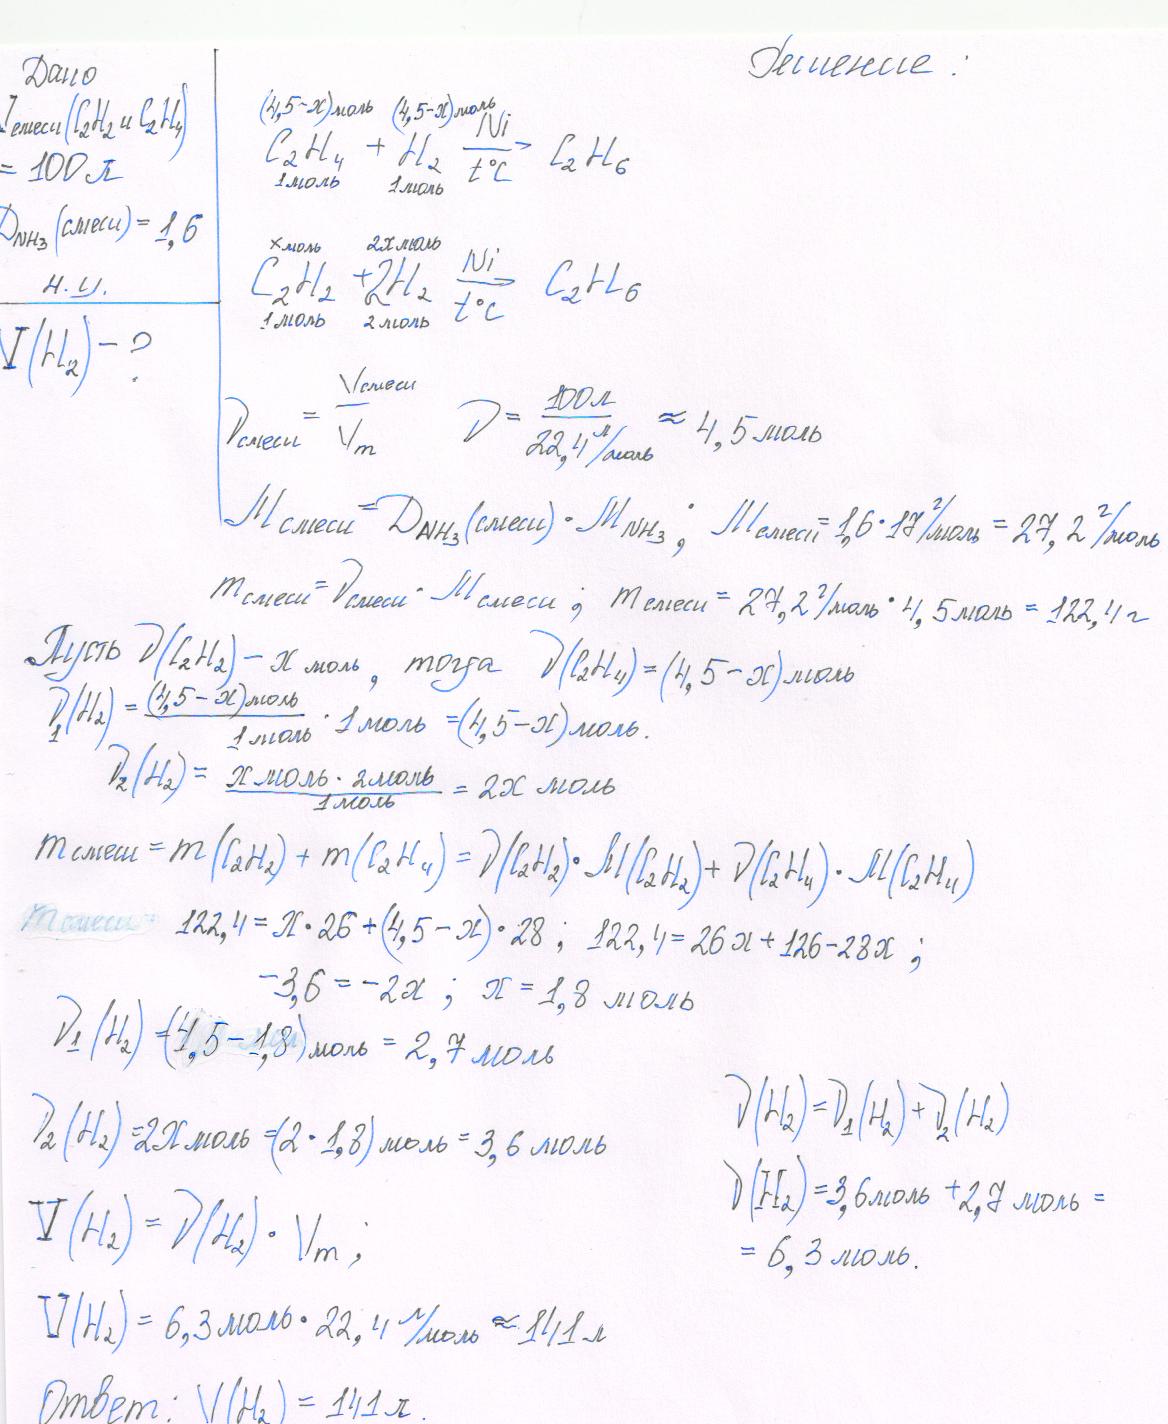 Дано
Vсмеси(C₂H₂ и C₂H₄)
= 100 л
D_NH₃(смеси) = 1,6
н.у.
V(H₂) – ?
Решение:
(4,5-x)моль (4,5-x)моль
C₂H₄ + H₂ Ni/t°C → C₂H₆
1моль 1моль
x моль 2x моль
C₂H₂ + 2H₂ Ni/t°C → C₂H₆
1моль 2моль
νсмеси = Vсмеси/Vm ν = 100л/22,4 л/моль ≈ 4,5 моль
Mсмеси = D_NH₃(смеси) · M_NH₃; Mсмеси = 1,6 · 17 г/моль = 27,2 г/моль
mсмеси = νсмеси · Mсмеси; mсмеси = 27,2 г/моль · 4,5 моль = 122,4 г
Пусть ν(C₂H₂) – x моль, тогда ν(C₂H₄) = (4,5-x) моль
ν₁(H₂) = (4,5-x)моль/1моль · 1моль = (4,5-x) моль.
ν₂(H₂) = x моль · 2моль/1моль = 2x моль
mсмеси = m(C₂H₂) + m(C₂H₄) = ν(C₂H₂) · M(C₂H₂) + ν(C₂H₄) · M(C₂H₄)
122,4 = x · 26 + (4,5-x) · 28; 122,4 = 26x + 126-28x;
-3,6 = -2x; x = 1,8 моль
ν₁(H₂) = (4,5-1,8) моль = 2,7 моль
ν₂(H₂) = 2x моль = (2 · 1,8) моль = 3,6 моль
ν(H₂) = ν₁(H₂) + ν₂(H₂)
ν(H₂) = 3,6 моль + 2,7 моль =
= 6,3 моль.
V(H₂) = ν(H₂) · Vm;
V(H₂) = 6,3 моль · 22,4 л/моль ≈ 141 л
Ответ: V(H₂) = 141 л.